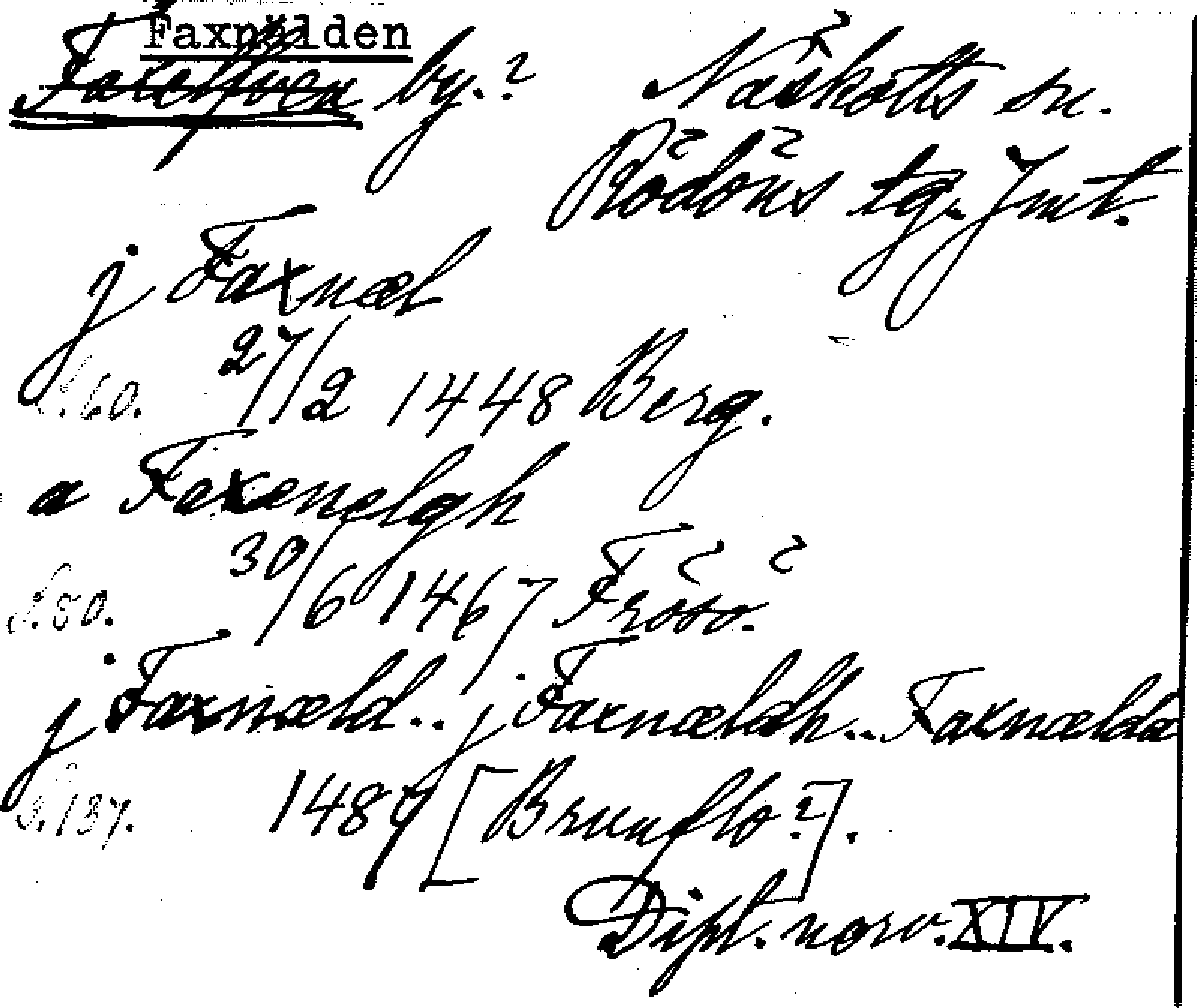 Faxnälden
by.? Näskotts sn.
Rödöns tg. Jmt.
j Faxnæl
S.60. 27/2 1448 Berg.
a Faxenelgh
S.80. 30/6 1467 Frösö.
j Faxnæld.. j Faxnældh.. Faxnælda
S.137. 1487 [Brunflo?].
Dipl. norv. XIV.